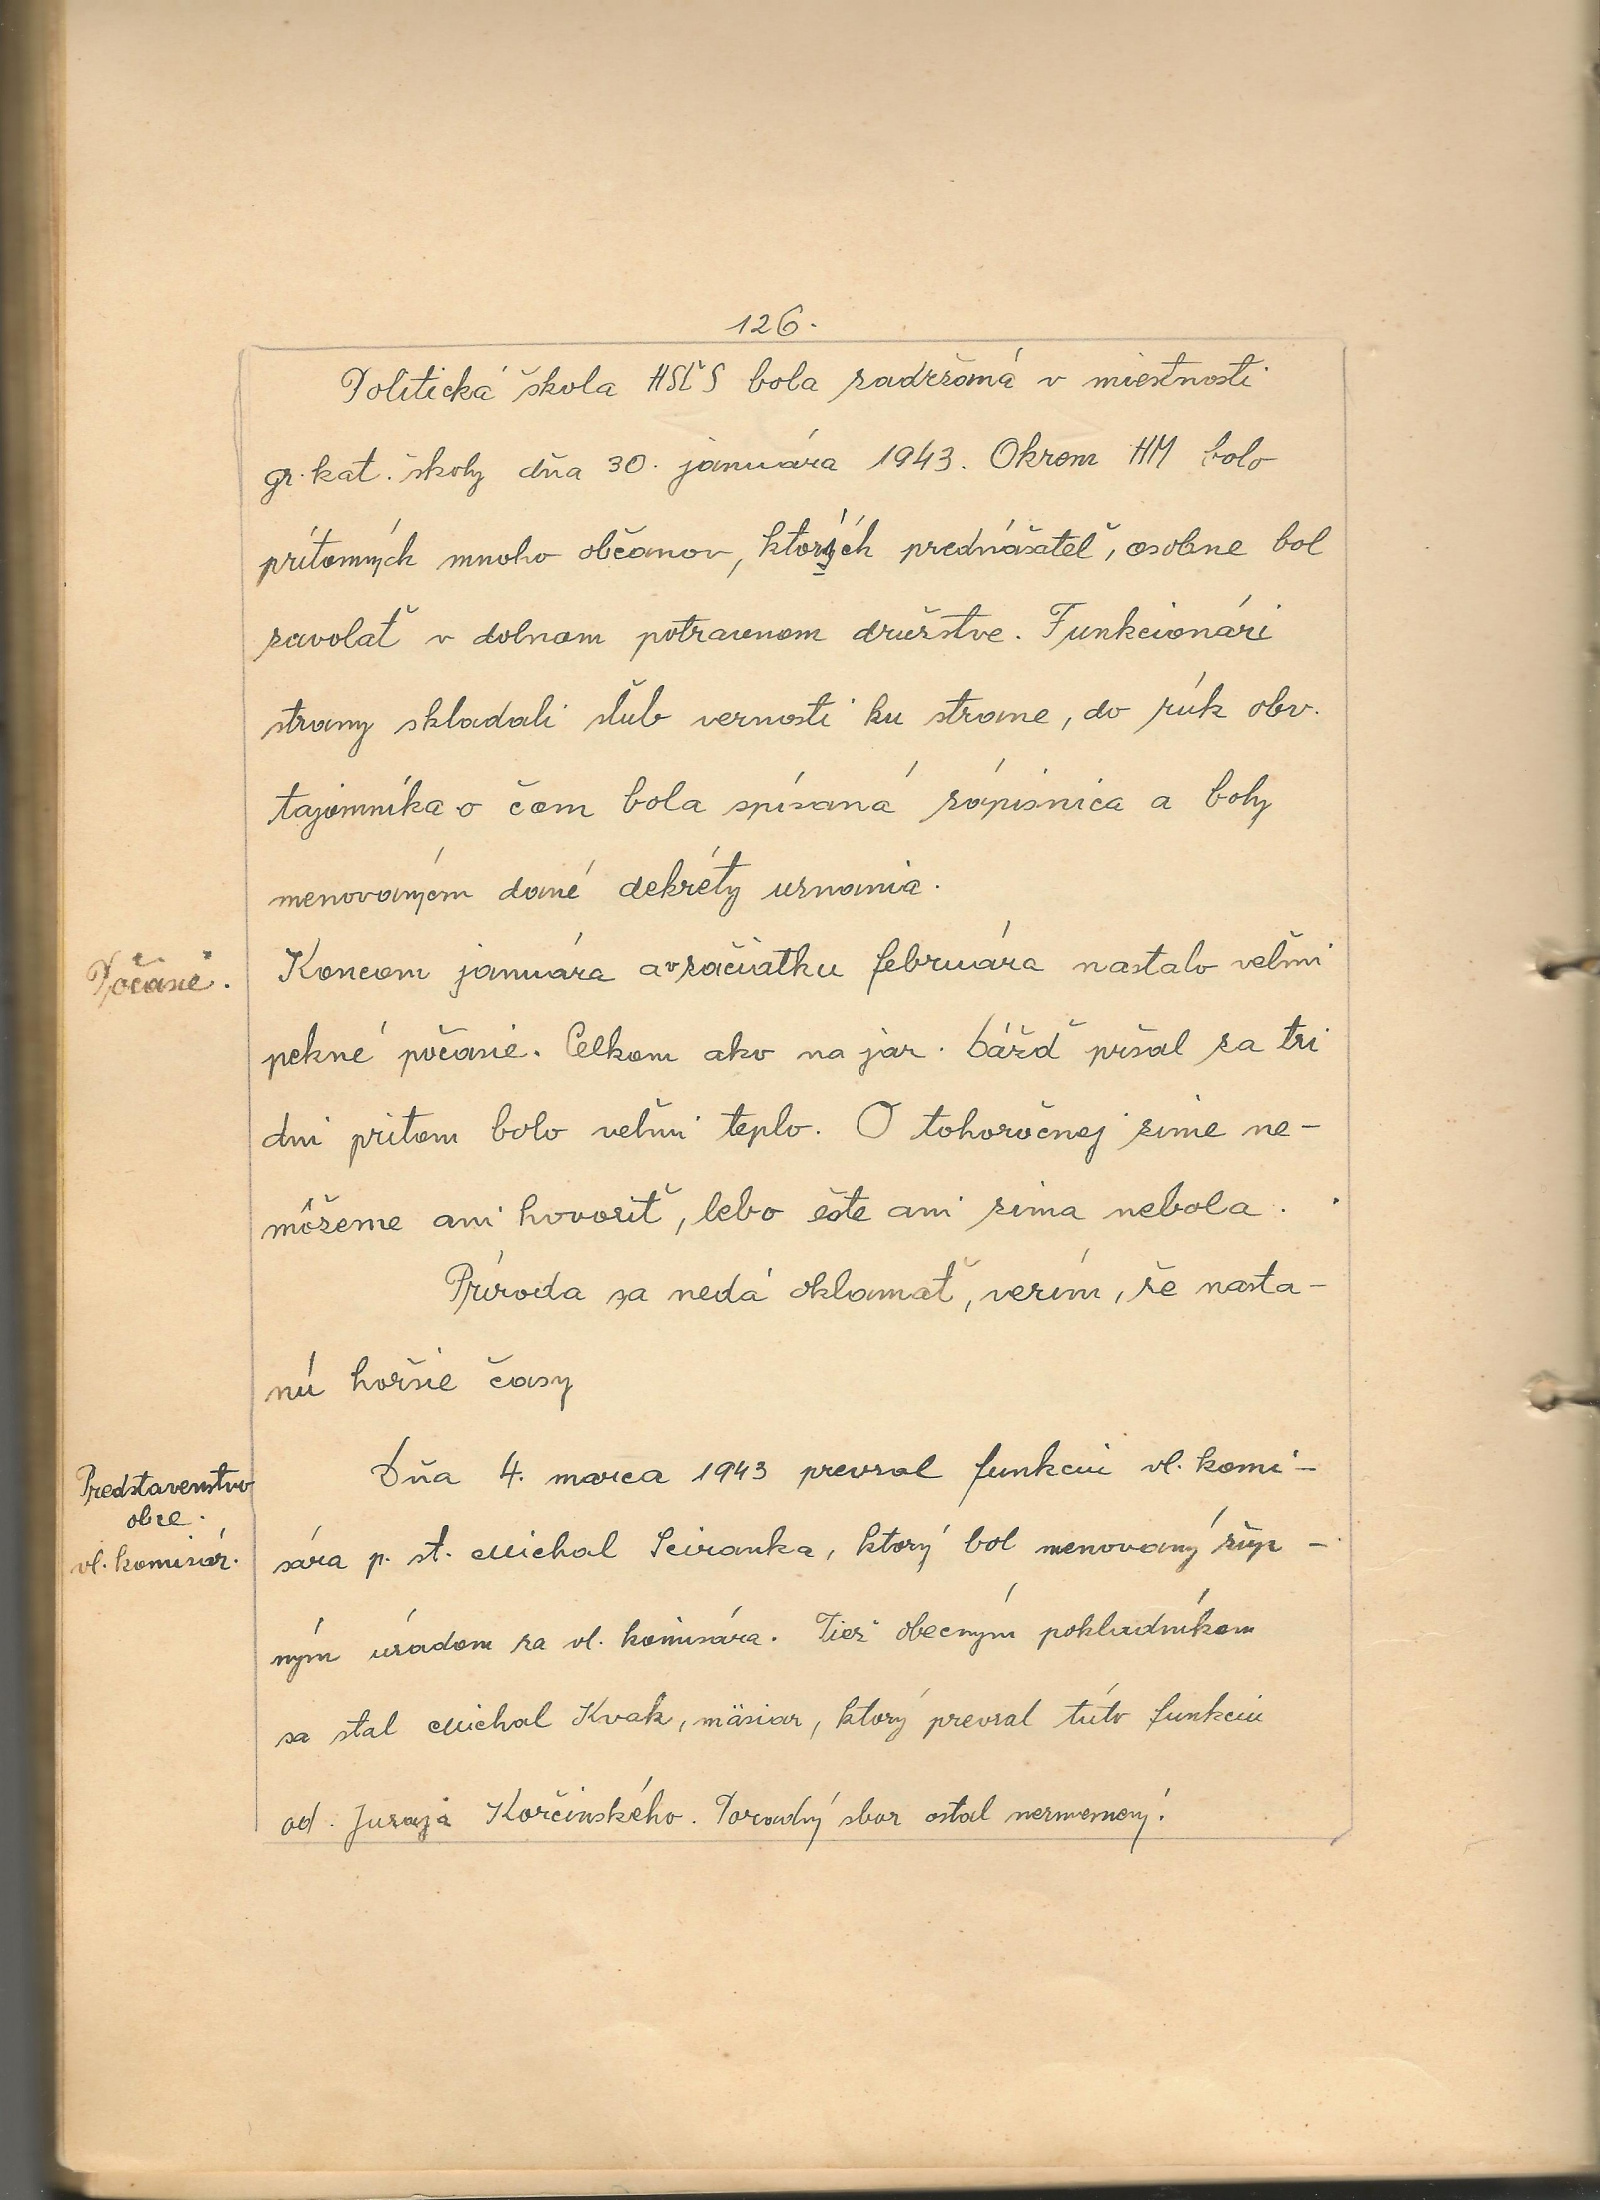 126.
Politická škola HSĽS bola zadržaná v miestnosti
gr. kat. školy dňa 30. januára 1943. Okrem HM bolo
prítomných mnoho občanov, ktorých prednášateľ, osobne bol
zavolať v dolnom potravnom družstve. Funkcionári
strany skladali sľub vernosti ku strane, do rúk obv.
tajomníka o čom bola spísaná zápisnica a boly
menovaným dané dekréty uznania.
Počasie.
Koncom januára a v začiatku februára nastalo veľmi
pekné počasie. Celkom ako na jar. Dážď pršal za tri
dni pritom bolo veľmi teplo. O tohoročnej zime ne-
môžeme ani hovoriť, lebo ešte ani zima nebola.
Príroda sa nedá oklamať, verím, že nasta-
nú horšie časy
Predstavenstvo
obce.
vl. komisár.
Dňa 4. marca 1943 prevzal funkciu vl. komi-
sára p. st. Michal Sciranka, ktorý bol menovaný žup-
ným úradom za vl. komisára. Tiež obecným pokladníkom
sa stal Michal Kvak, mäsiar, ktorý prevzal túto funkciu
od Juraja Korčinského. Poradný sbor ostal nezmenený.